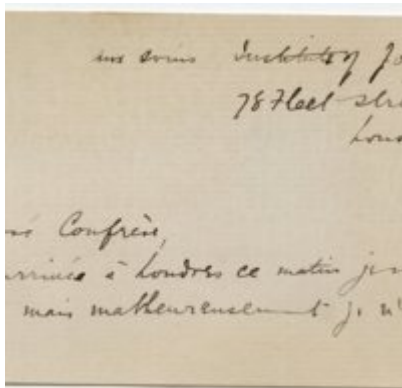 aux soins Institute of Jo
78 Fleet Stre
Lon
né Confrère,
arrivée à Londres ce matin je
mais malheureusement je n'